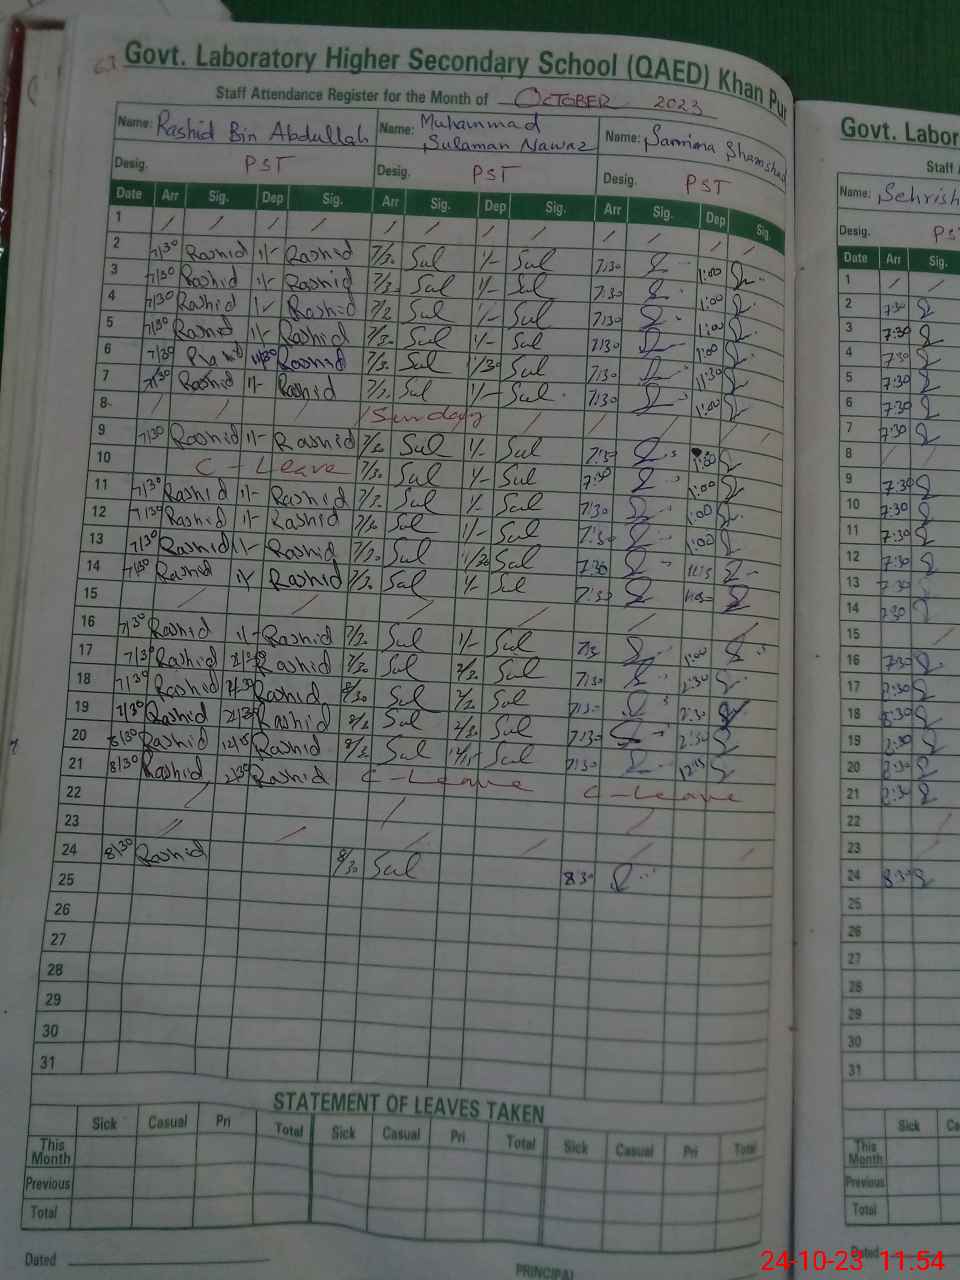 63 Govt. Laboratory Higher Secondary School (QAED) Khan Pur
Staff Attendance Register for the Month of OCTOBER 2023
Name: Rashid Bin Abdullah Name: Muhammad Sulaman Nawaz Name: Samina Shamshad
Desig. PST Desig. PST Desig. PST
Date Arr Sig. Dep Sig. Arr Sig. Dep Sig. Arr Sig. Dep Sig.
1
2 7/30 Rashid 1/- Rashid 7/30 Sul 1/- Sul 7:30 1:00
3 7/30 Rashid 1/- Rashid 7/30 Sul 1/- Sul 7:30 1:00
4 7/30 Rashid 1/- Rashid 7/30 Sul 1/- Sul 7:30 1:00
5 7/30 Rashid 1/- Rashid 7/30 Sul 1/- Sul 7:30 1:00
6 7/30 Rashid 11/30 Rashid 7/30 Sul 11/30 Sul 7:30 11:30
7 7/30 Rashid 1/- Rashid 7/30 Sul 1/- Sul 7:30 1:00
8 Sunday
9 7/30 Rashid 1/- Rashid 7/30 Sul 1/- Sul 7:30 1:00
10 C-Leave 7/30 Sul 1/- Sul 7:30 1:00
11 7/30 Rashid 1/- Rashid 7/30 Sul 1/- Sul 7:30 1:00
12 7/30 Rashid 1/- Rashid 7/30 Sul 1/- Sul 7:30 1:00
13 7/30 Rashid 1/- Rashid 7/30 Sul 11/30 Sul 7:30
14 7/30 Rashid 1/- Rashid 7/30 Sul 1/- Sul 7:30
15
16 7/30 Rashid 1/- Rashid 7/30 Sul 1/- Sul 7:30 1:00
17 7/30 Rashid 2/30 Rashid 7/30 Sul 2/30 Sul 7:30 2:30
18 7/30 Rashid 2/30 Rashid 8/30 Sul 2/30 Sul 7:30 2:30
19 7/30 Rashid 2/30 Rashid 8/30 Sul 2/30 Sul 7:30 2:30
20 8/30 Rashid 12/15 Rashid 8/30 Sul 12/15 Sul 7:30 12:15
21 8/30 Rashid 2/30 Rashid C-Leave C-Leave
22
23
24 8/30 Rashid 8/30 Sul 8:30
25
26
27
28
29
30
31
STATEMENT OF LEAVES TAKEN
Sick Casual Pri Total Sick Casual Pri Total Sick Casual Pri Total
This Month
Previous
Total
Dated
PRINCIPAL
Govt. Labor
Staff
Name: Sehrish
Desig. PS
Date Arr Sig.
1
2 7:30
3 7:30
4 7:30
5 7:30
6 7:30
7 7:30
8
9 7:30
10 7:30
11 7:30
12 7:30
13 7:30
14 7:30
15
16 7:30
17
18 8:30
19
20 8:30
21
22
23
24 8:30
25
26
27
28
29
30
31
Sick Ca
This Month
Previous
Total
Dated
24-10-23 11.54